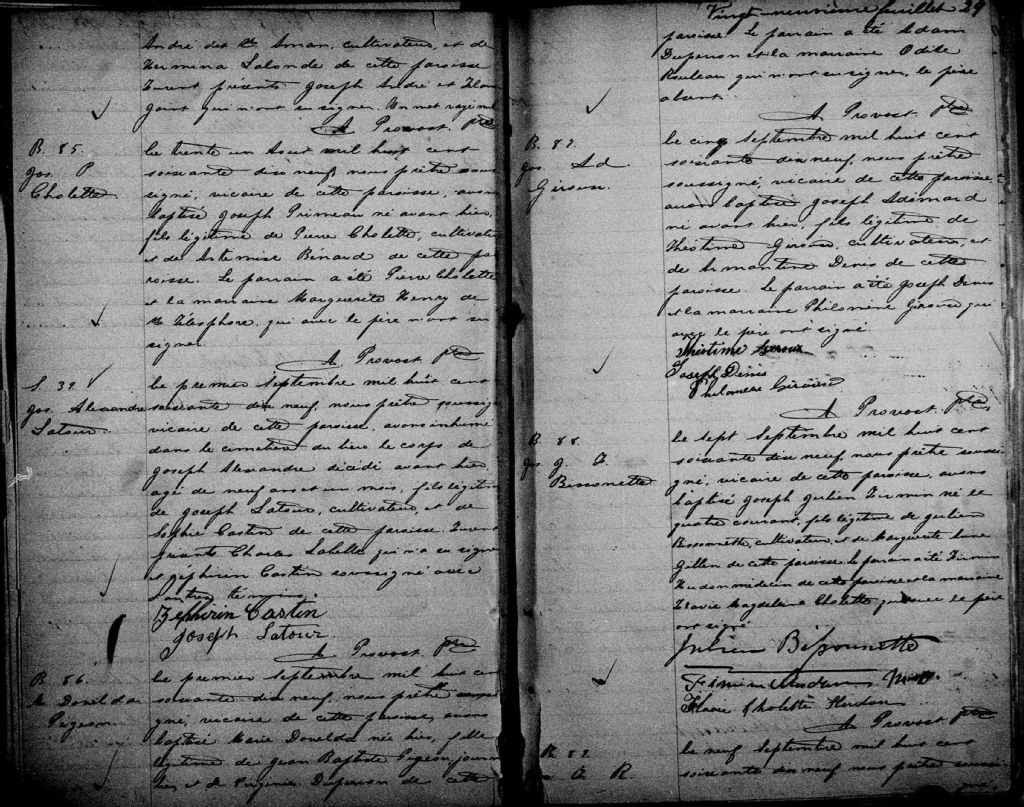 André dit St Aman, cultivateur, et de
Hermina Lalonde de cette paroisse
Furent présents Joseph André et
qui n'ont su signer. Un mot rayé nul
A Provost ptre
B. 85.
Jos. P
Cholette
Le trente un Aout mil huit cent
soixante dix neuf, nous prêtre sous
signé, vicaire de cette paroisse, avons
baptisé Joseph Primeau né avant hier,
fils légitime de Pierre Cholette, cultivateur
et de Artemise Bénard de cette pa
roisse. Le parrain a été Pierre Cholette
et la marraine Marguerite Henry de
St Télesphore, qui avec le père n'ont su
signer.
A Provost ptre
S. 39.
Jos. Alexandre
Latour.
Le premier Septembre mil huit cent
soixante dix neuf, nous prêtre, soussigné
vicaire de cette paroisse, avons inhumé
dans le cimetière du lieu le corps de
Joseph Alexandre décédé avant hier
agé de neuf ans et un mois, fils légitime
de Joseph Latour, cultivateur, et de
Sophie Castin de cette paroisse. Furent
présents Charles Labelle qui n'a su signer
et Zéphirin Castin soussigné avec
d'autres témoins.
Zephirin Castin
Joseph Latour
A Provost ptre
B 86.
M. Donelda
Pigeon
Le premier Septembre mil huit cent
soixante dix neuf, nous prêtre soussi
gné, vicaire de cette paroisse, avons
baptisé Marie Donelda née hier, fille
légitime de Jean Baptiste Pigeon, journa
lier, et de Virginie Duperon de cette
Vingt-neuvième feuillet 29
paroisse. Le parrain a été Adam
Duperon et la marraine Odile
Rouleau qui n'ont su signer, le père
absent.
A Provost ptre
B. 87.
Jos. Ad
Giroux.
Le cinq Septembre mil huit cent
soixante dix neuf, nous prêtre
soussigné, vicaire de cette paroisse,
avons baptisé Joseph Adémard
né avant hier, fils légitime de
Théotime Giroux, cultivateur, et
de Armantine Denis de cette
paroisse. Le parrain a été Joseph Denis
et la marraine Philomène Giroux qui
avec le père ont signé.
Théotime Giroux
Joseph Denis
Philomene Giroux
A Provost ptre
B. 88.
Jos. J. F.
Bissonette
Le sept Septembre mil huit cent
soixante dix neuf, nous prêtre soussi
gné, vicaire de cette paroisse, avons
baptisé Joseph Julien Firmin né le
quatre courant, fils légitime de Julien
Bissonette, cultivateur, et de Marguerite Anne
Gillen de cette paroisse. Le parrain a été Firmin
Hudon médecin de cette paroisse et la marraine
Flavie Magdeleine Cholette qui avec le père
ont signé.
Julien Bissonnette
Firmin Hudon M.D.
Flavie Cholette Hudon
A Provost ptre
B. 89.
F. R.
Le neuf Septembre mil huit cent
soixante dix neuf nous prêtre soussi